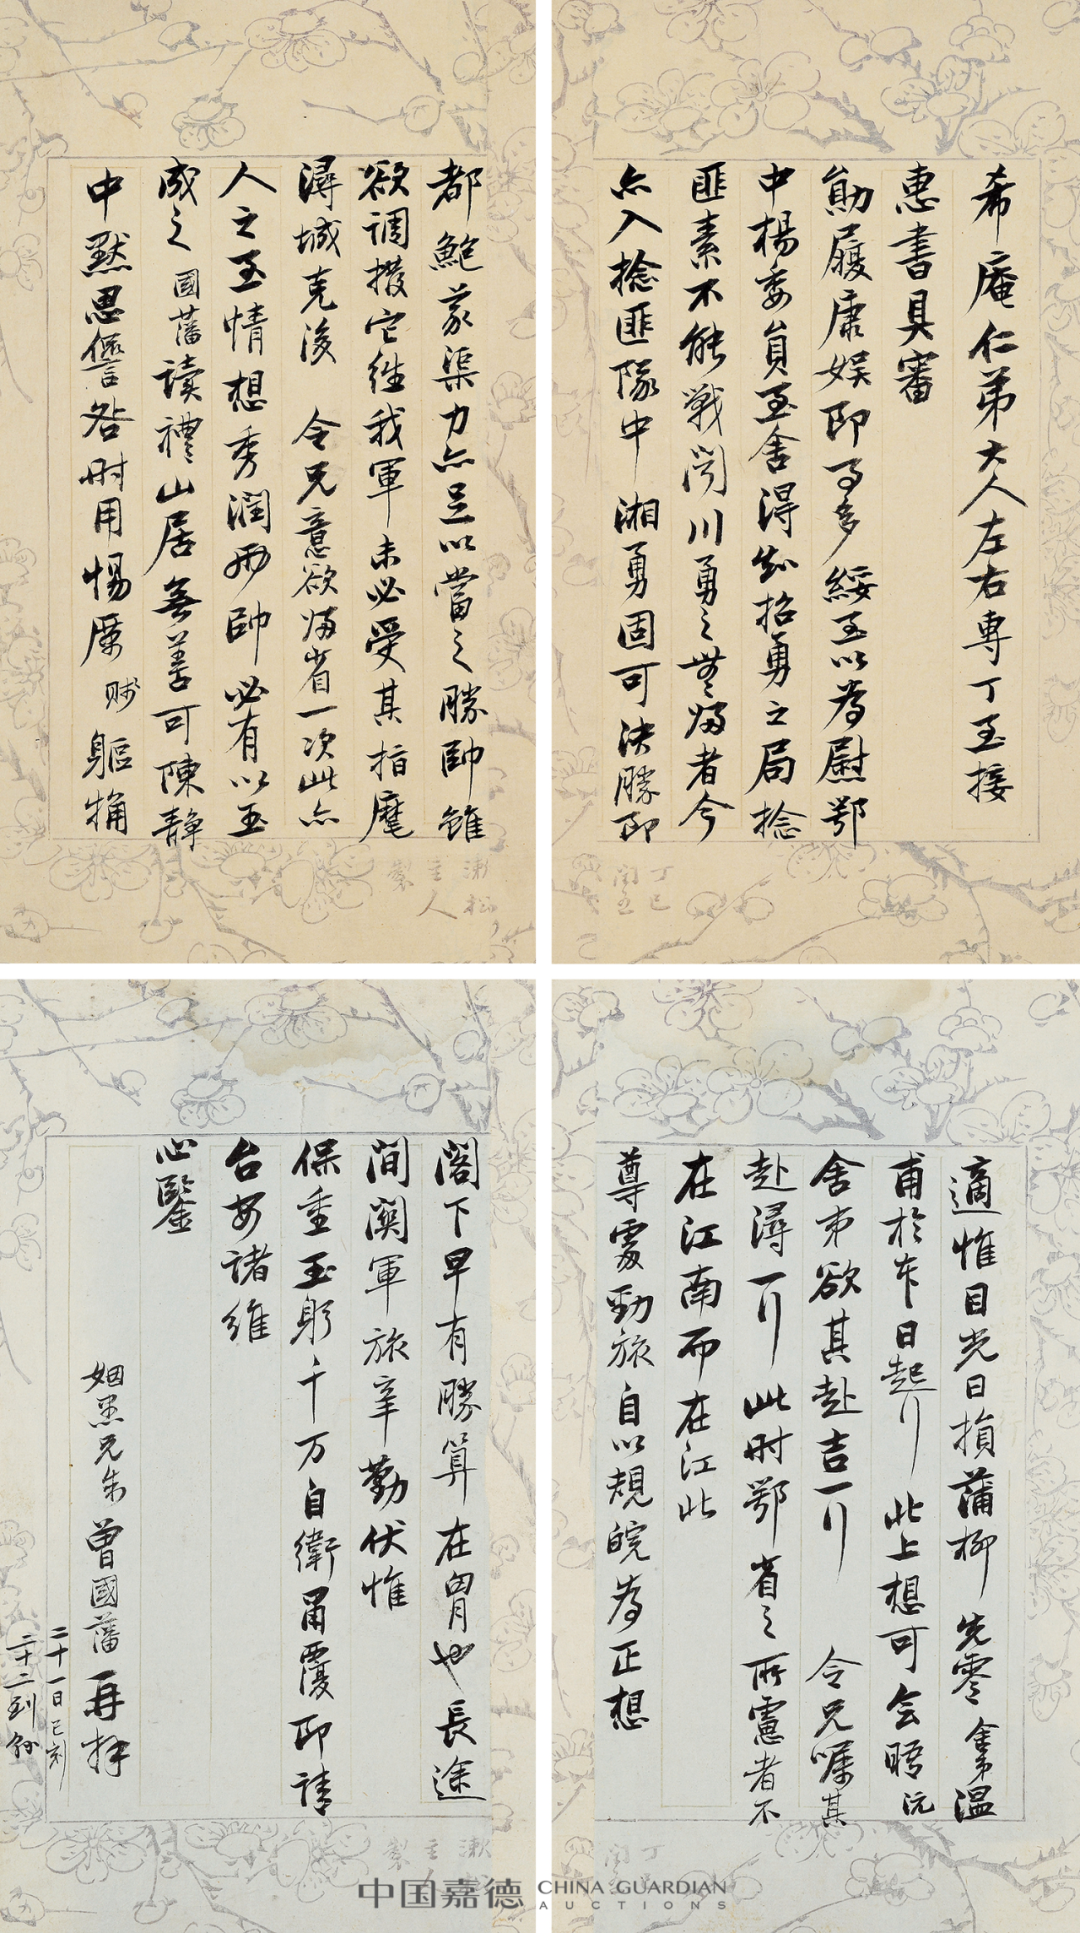 希庵仁弟大人左右専丁至接
惠書具審
勛履康娱即事多綏至以為慰鄂
中楊委員至舍得悉招勇之局捻
匪素不能戰闻川勇之無歸者今
亦入捻匪隊中湘勇固可決勝即
都鮑蒋渠力亦足以當之勝帥雖
欲调撥它往我軍未必受其指麾
潯城克後 令兄意欲歸省一次此亦
人之至情想秀潤兩帥必有以玉
成之 國藩讀禮山居無善可陳静
中默思愆咎时用惕厲 賤軀犕
適惟目光日損蒲柳先零奪温
甫於本日起行此上想可会晤沅
舍弟欲其赴吉一行 令兄嘱其
赴潯一行此时鄂省之所慮者不
在江南而在江北
尊處勁旅自以規皖為正想
閣下早有勝算在胷也長途
间關軍旅辛勤伏惟
保重玉躬千万自衛肅覆即請
台安諸維
心鑒
姻愚兄朱曾國藩再拜
二十一日巳刻
二十二到
丁巳
漱松
主人
製
丁
漱
主
製
中国嘉德 CHINA GUARDIAN
AUCTIONS